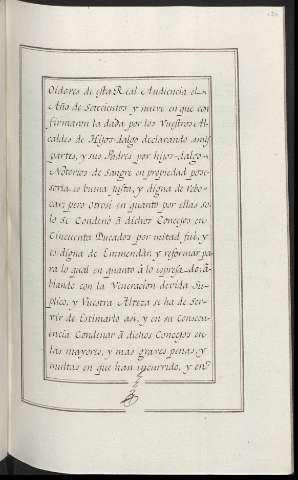 Oidores de esta Real Audiencia el
Año de Setecientos y nueve en que con
firmaron la dada por los Vuestros Al-
caldes de Hijos-dalgo declarando a mis
partes, y sus Padres por hijos-dalgo
Notorios de Sangre en propiedad, pose-
soria, es buena, justa, y digna de
pero otrosi en quanto por ellas so
lo se Condenó á dichos Concejos en
Cincuenta Ducados por mitad, fué, y
es digna de Enmendár, y reformar pa
ra lo qual en quanto á lo
blando con la Veneracion devida Su-
plico, y Vuestra Alteza se ha de Ser-
vir de Estimarlo asi, y en su Conseq
encia Condenar á dichos Concejos en
las mayores, y mas graves penas, y
multas en que han incurrido, y en